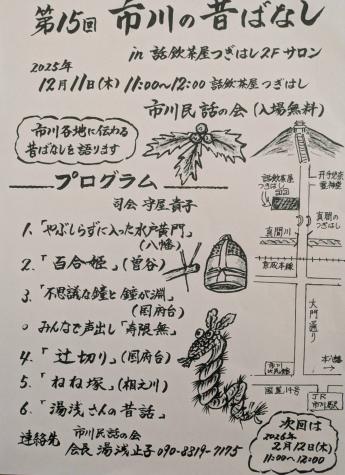 第15回 市川の昔ばなし
in 話飲茶屋つぎはし2Fサロン
2025年
12月11日(木) 11:00〜12:00 話飲茶屋つぎはし
市川民話の会 (入場無料)
市川各地に伝わる
昔ばなしを語ります
プログラム
司会 守屋貴子
1. 「やぶしらずに入った水戸黄門」
(八幡)
2. 「百合姫」(曽谷)
3. 「不思議な鐘と鐘が淵」
(国府台)
○ みんなで声出し「寿限無」
4. 「辻切り」(国府台)
5. 「ねね塚」(相之川)
6. 「湯浅さんの昔話」
連絡先 市川民話の会
会長 湯浅止子 090-8319-7175
話飲茶屋
つぎはし
手児奈
霊神堂
真間の
つぎはし
真間川
京成本線
大門通り
本八幡
国道14号
JR
市川駅
次回は
2026年
2月12日(木)
11:00〜12:00